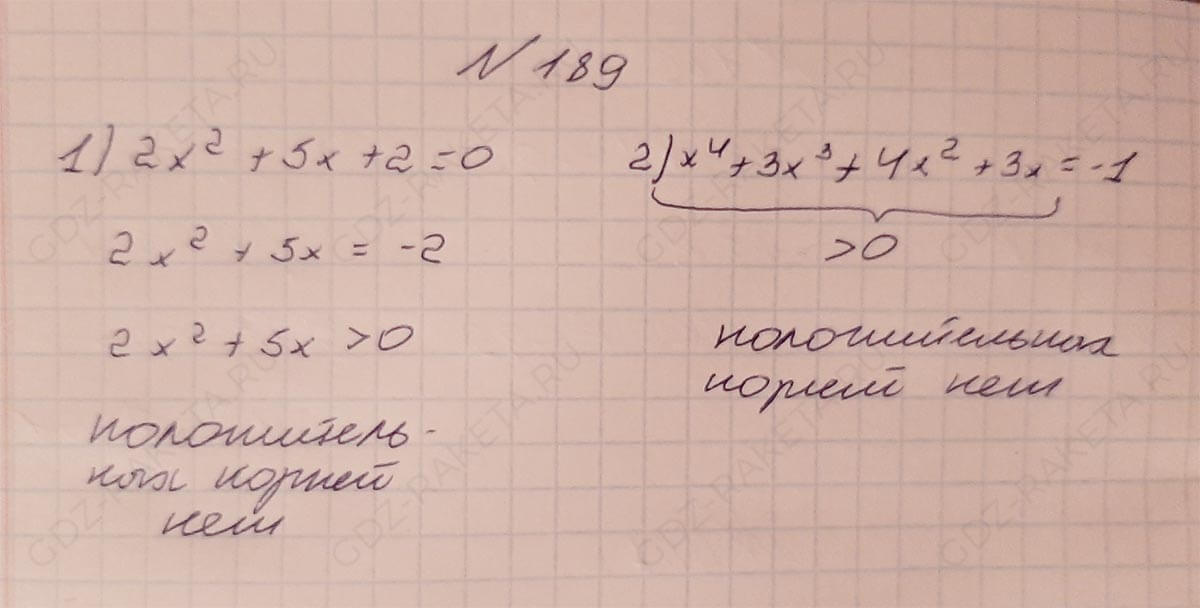 N 189
1) 2x² + 5x + 2 = 0
2x² + 5x = -2
2x² + 5x > 0
положитель-
ных корней
нет
2) x⁴ + 3x³ + 4x² + 3x = -1
>0
положительных
корней нет
GDZ-RAKETA.RU